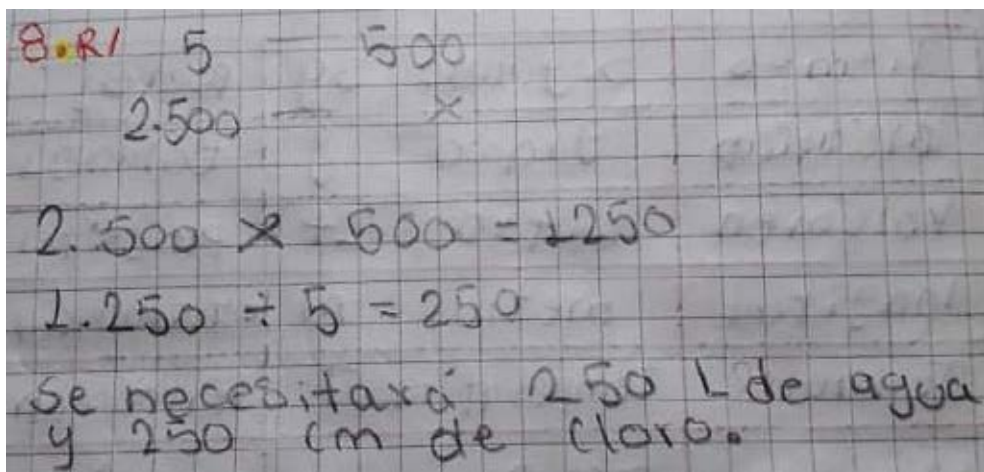 8. R/ 5 — 500
2.500 — x
2.500 x 500 = 1250
1.250 ÷ 5 = 250
se necesitará 250 L de agua
y 250 cm de cloro.